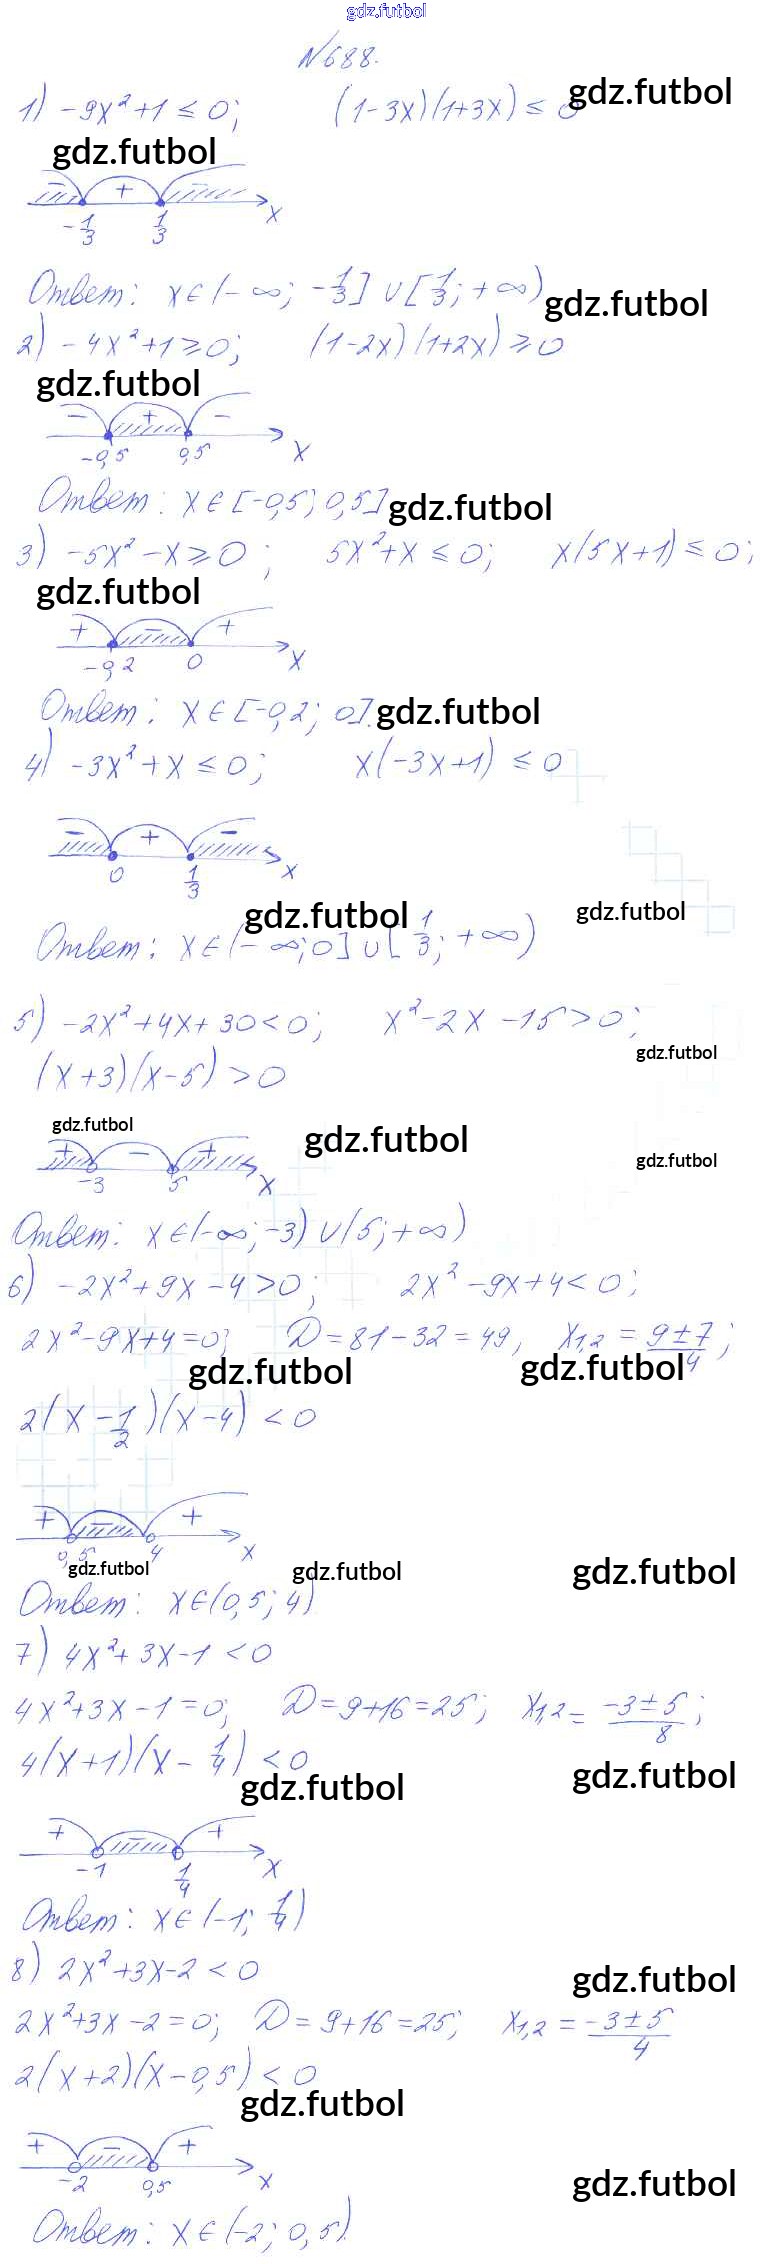 gdz.futbol
N688.
1) -9x²+1 ≤ 0; (1-3x)(1+3x) ≤ 0
gdz.futbol
gdz.futbol
- + -
-1/3 1/3 x
Ответ: x∈(-∞; -1/3] ∪ [1/3; +∞)
gdz.futbol
2) -4x²+1 ≥ 0; (1-2x)(1+2x) ≥ 0
gdz.futbol
- + -
-0,5 0,5 x
Ответ: x∈[-0,5; 0,5]
gdz.futbol
3) -5x²-x ≥ 0; 5x²+x ≤ 0; x(5x+1) ≤ 0;
gdz.futbol
+ - +
-0,2 0 x
Ответ: x∈[-0,2; 0].
gdz.futbol
4) -3x²+x ≤ 0; x(-3x+1) ≤ 0
- + -
0 1/3 x
gdz.futbol gdz.futbol
Ответ: x∈(-∞; 0] ∪ [1/3; +∞)
5) -2x²+4x+30 < 0; x²-2x-15 > 0;
gdz.futbol
(x+3)(x-5) > 0
gdz.futbol
gdz.futbol
gdz.futbol
+ - +
-3 5 x
Ответ: x∈(-∞; -3) ∪ (5; +∞)
6) -2x²+9x-4 > 0; 2x²-9x+4 < 0;
2x²-9x+4=0; D=81-32=49, x1,2 = (9±7)/4;
gdz.futbol gdz.futbol
2(x-1/2)(x-4) < 0
+ - +
0,5 4 x
gdz.futbol gdz.futbol gdz.futbol
Ответ: x∈(0,5; 4)
7) 4x²+3x-1 < 0
4x²+3x-1=0; D=9+16=25; x1,2 = (-3±5)/8;
4(x+1)(x-1/4) < 0
gdz.futbol gdz.futbol
+ - +
-1 1/4 x
Ответ: x∈(-1; 1/4)
8) 2x²+3x-2 < 0
gdz.futbol
2x²+3x-2=0; D=9+16=25; x1,2 = (-3±5)/4
2(x+2)(x-0,5) < 0
gdz.futbol
+ - +
-2 0,5 x
gdz.futbol
Ответ: x∈(-2; 0,5).